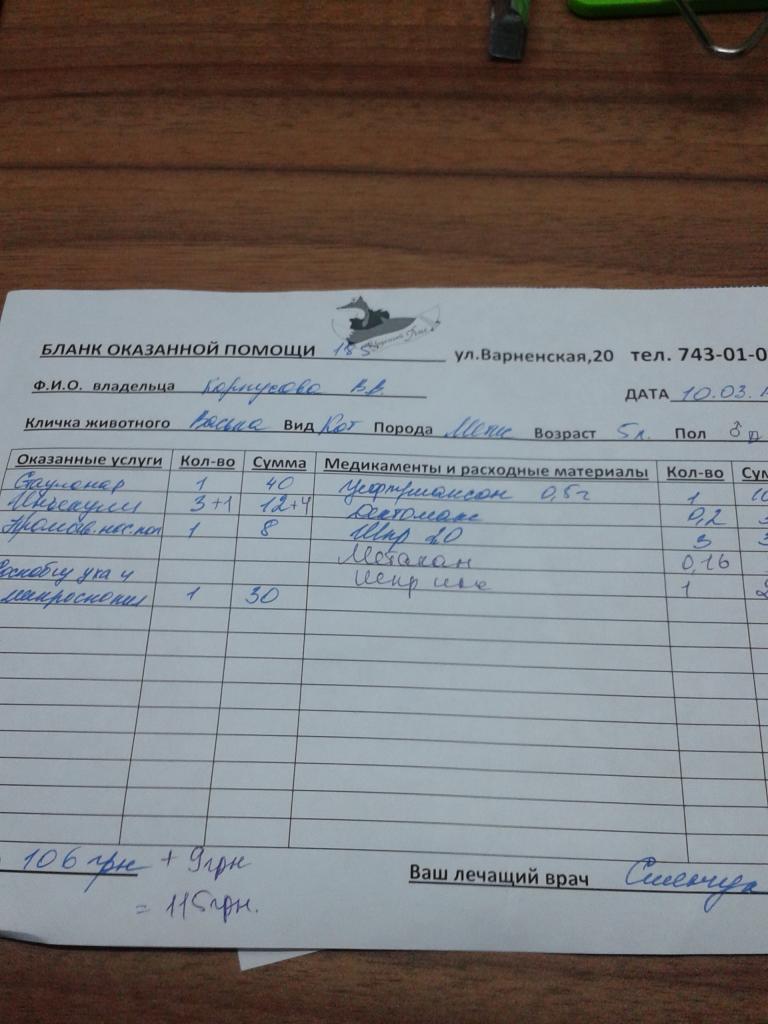 БЛАНК ОКАЗАННОЙ ПОМОЩИ 185 ул.Варненская,20 тел. 743-01-0
Ф.И.О. владельца Корнусова В.В. ДАТА 10.03.
Кличка животного Васька Вид Кот Порода Возраст 5 л. Пол ♂
Оказанные услуги Кол-во Сумма Медикаменты и расходные материалы Кол-во Сум
Стационар 1 40 Цефтриаксон 0,5г 1 10
3+1 12+4 0,2
1 8 Шпр 20 3 3
0,16
1 2
микроскопия 1 30
106 грн + 9грн
= 115грн.
Ваш лечащий врач